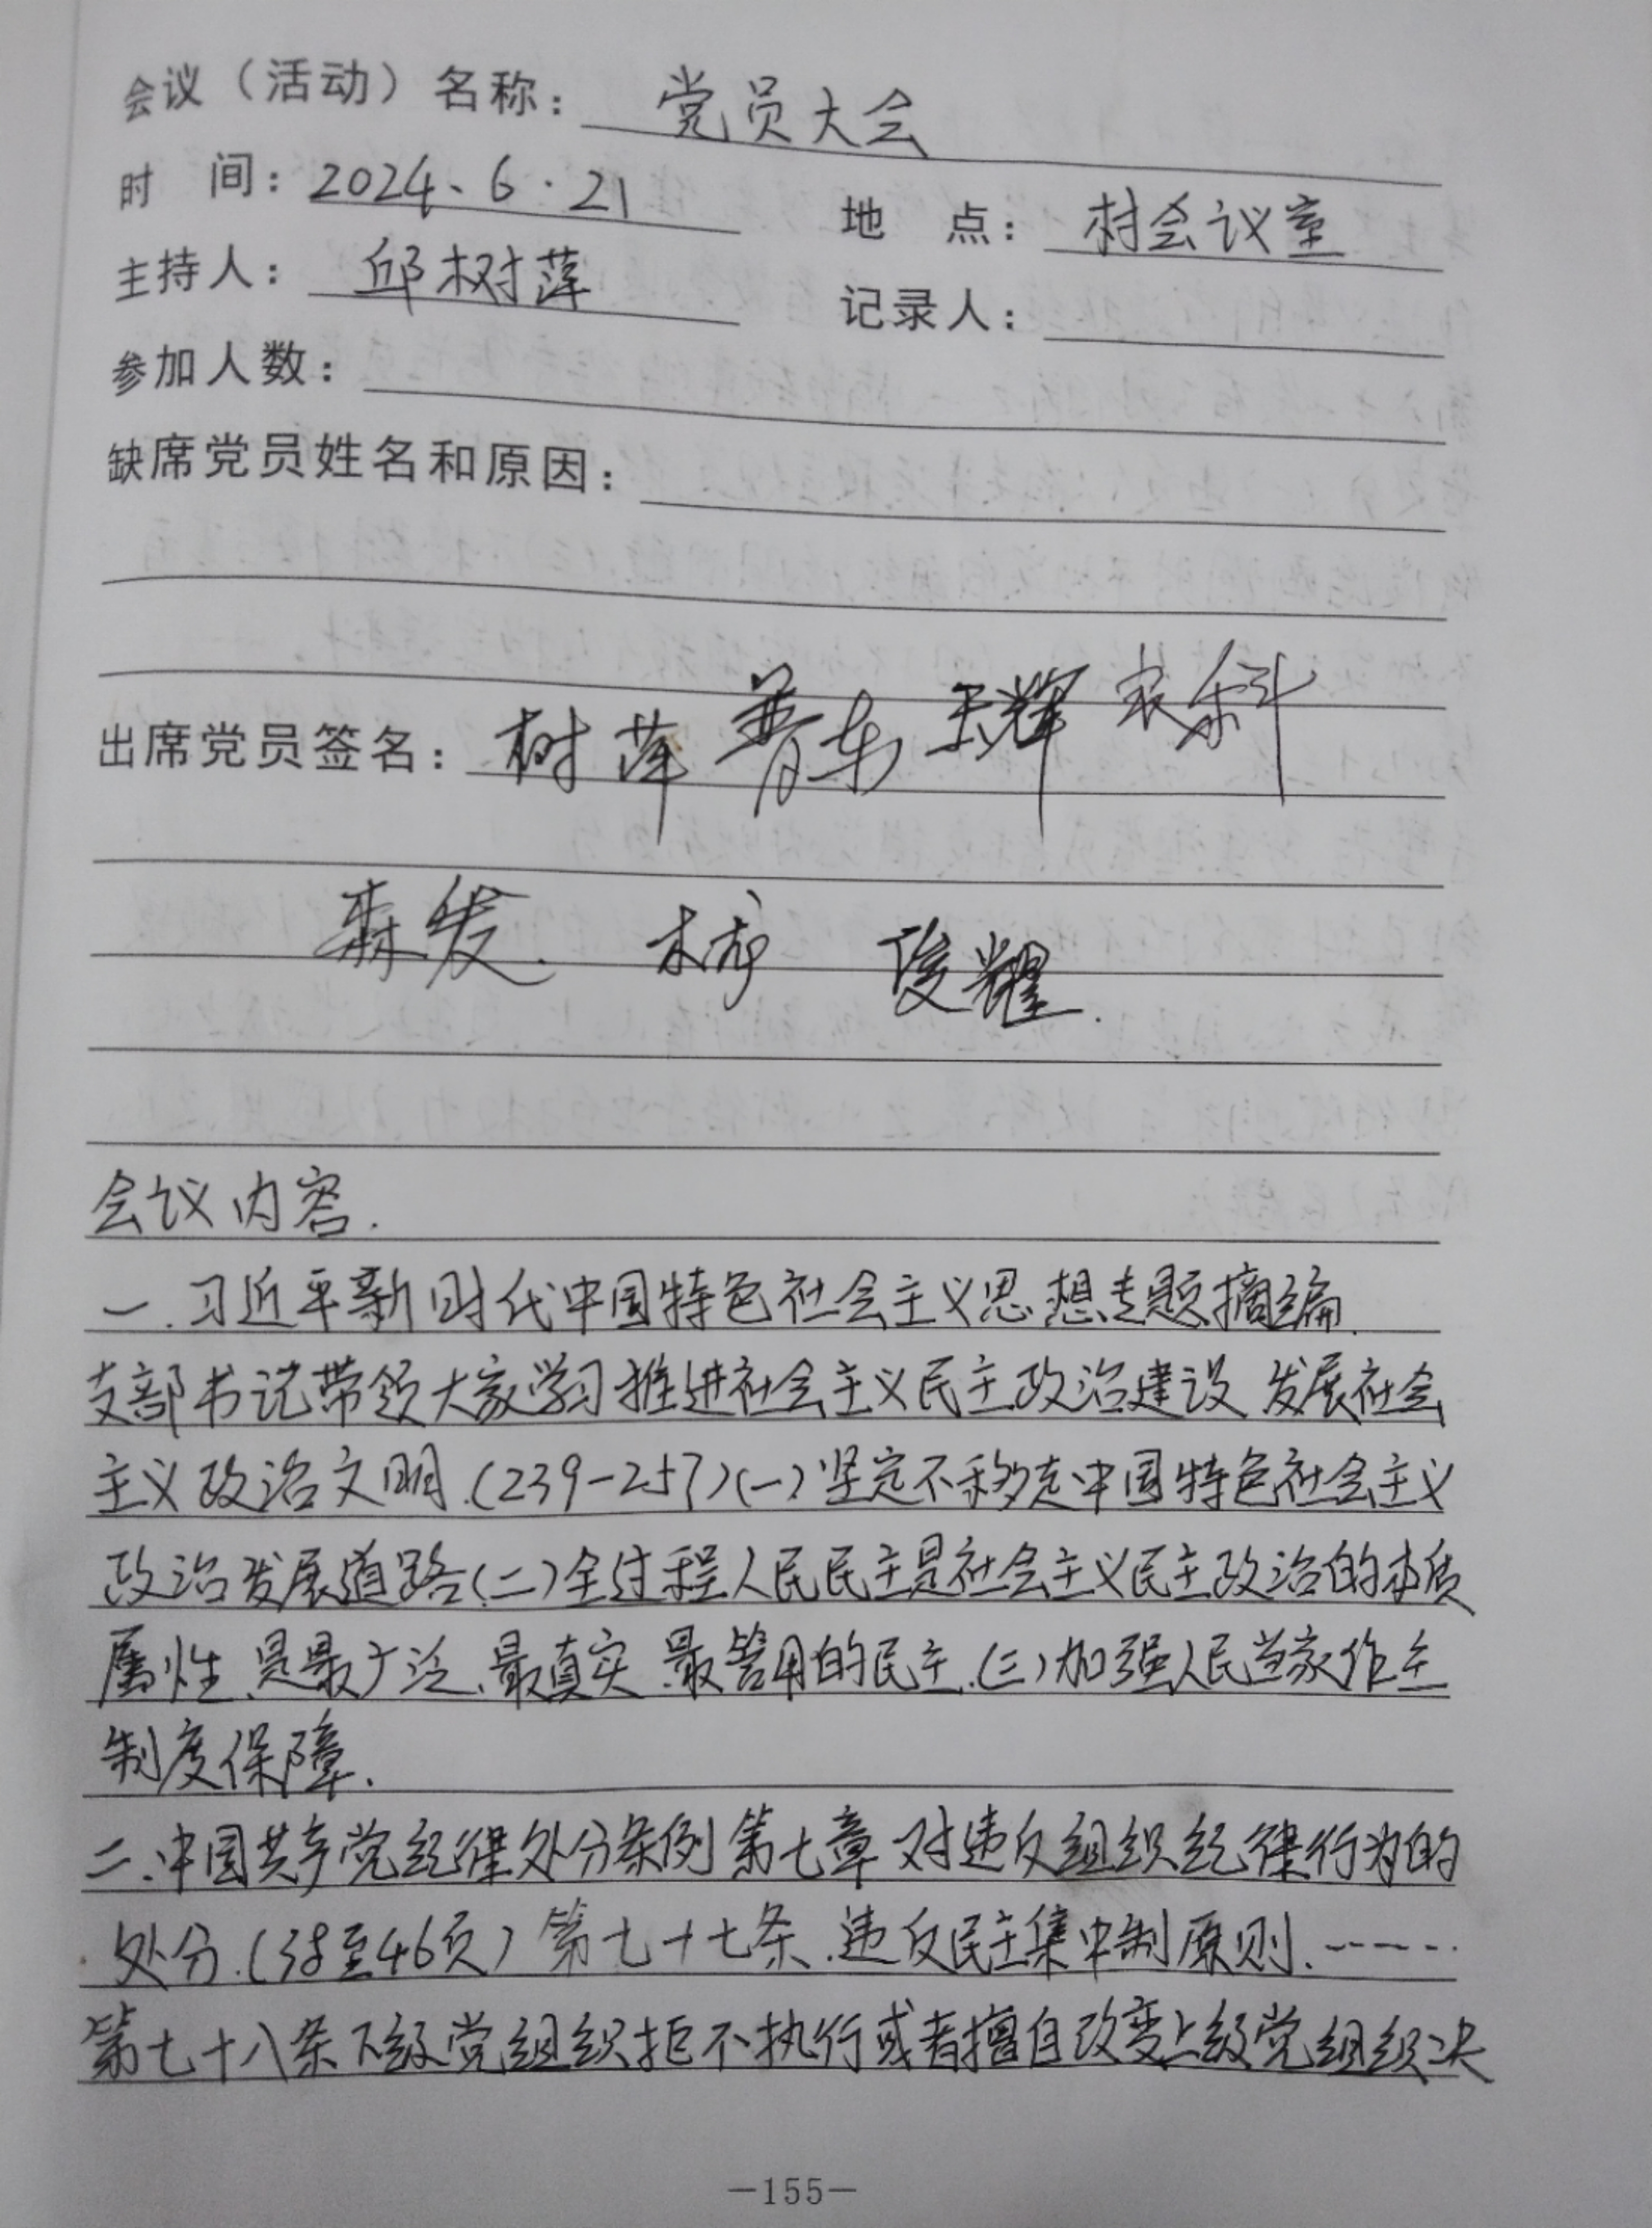 会议（活动）名称：党员大会
时 间：2024、6·21 地 点：村会议室
主持人：邱树萍 记录人：
参加人数：
缺席党员姓名和原因：
出席党员签名：树萍 东 辉 科
森发. 俊耀.
会议内容.
一.习近平新时代中国特色社会主义思想专题摘编.
支部书记带领大家学习推进社会主义民主政治建设 发展社会
主义政治文明.(239-257)(一)坚定不移走中国特色社会主义
政治发展道路(二)全过程人民民主是社会主义民主政治的本质
属性、是最广泛、最真实、最管用的民主.(三)加强人民当家作主
制度保障.
二.中国共产党纪律处分条例 第七章 对违反组织纪律行为的
处分.(38至46页) 第七十七条.违反民主集中制原则.……
第七十八条下级党组织拒不执行或者擅自改变上级党组织决
—155—